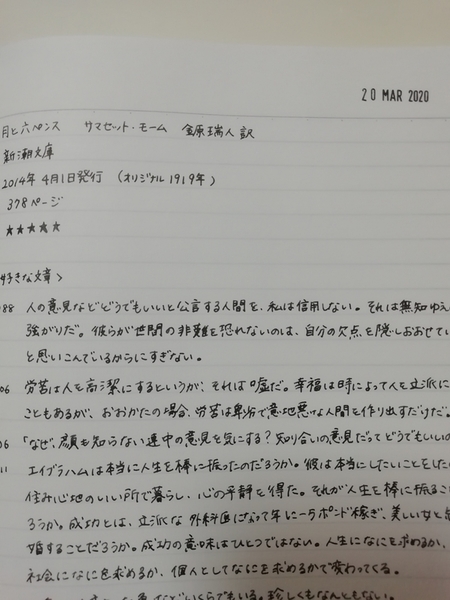 20 MAR 2020
月と六ペンス サマセット・モーム 金原瑞人 訳
新潮文庫
2014年4月1日発行 (オリジナル1919年)
378ページ
★★★★★
好きな文章>
人の意見などどうでもいいと公言する人間を、私は信用しない。それは無知ゆえ
強がりだ。彼らが世間の非難を恐れないのは、自分の欠点を隠しおおせてい
と思いこんでいるからにすぎない。
労苦は人を高潔にするというが、それは嘘だ。幸福は時によって人を立派に
こともあるが、おおかたの場合、労苦は卑劣で意地悪な人間を作り出すだけだ。
「なぜ、顔も知らない連中の意見を気にする?知り合いの意見だってどうでもいいの
エイブラハムは本当に人生を棒に振ったのだろうか。彼は本当にしたいことをした
住み心地のいい所で暮らし、心の平静を得た。それが人生を棒に振ること
ろうか。成功とは、立派な外科医になって年に一万ポンド稼ぎ、美しい女と
婚することだろうか。成功の意味はひとつではない。人生になにを求めるか、
社会になにを求めるか、個人としてなにを求めるかで変わってくる。